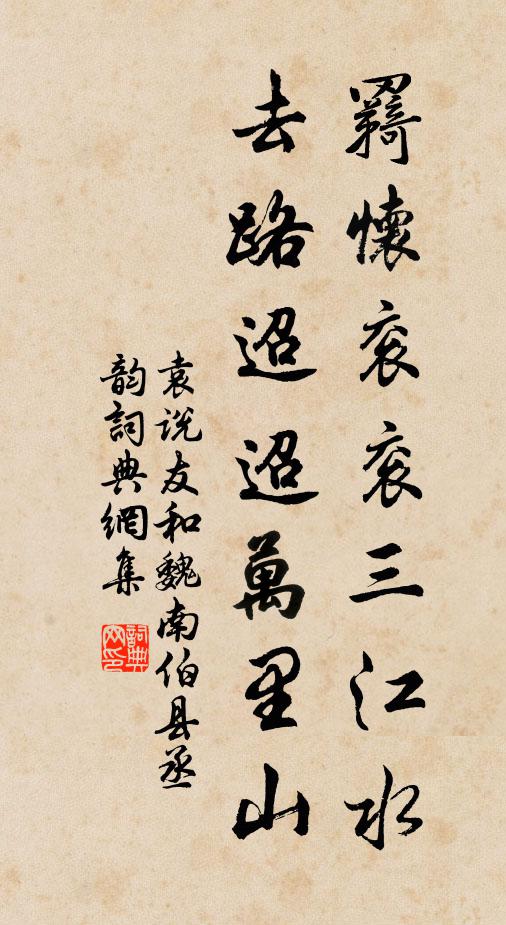 羇懷衮衮三江水
去路迢迢萬里山
袁说友和魏南伯县丞
韵詞典網集
詞典
网印